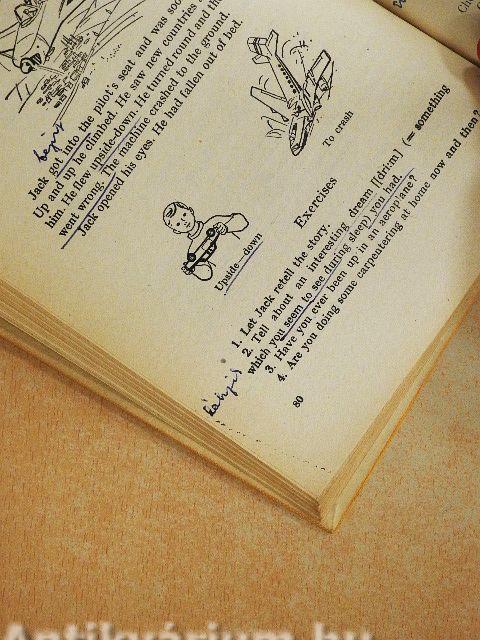 Jack got into the pilot's seat and was soo
Up and up he climbed. He saw new countries
him. He flew upside-down. He turned round and th
went wrong. The machine crashed to the ground.
Jack opened his eyes. He had fallen out of bed.
To crash
Upside—down
Exercises
1. Let Jack retell the story.
2. Tell about an interesting dream [dri:m] (= something
which you seem to see during sleep) you had.
3. Have you ever been up in an aeroplane?
4. Are you doing some carpentering at home now and then?
80
Antikvárium.hu